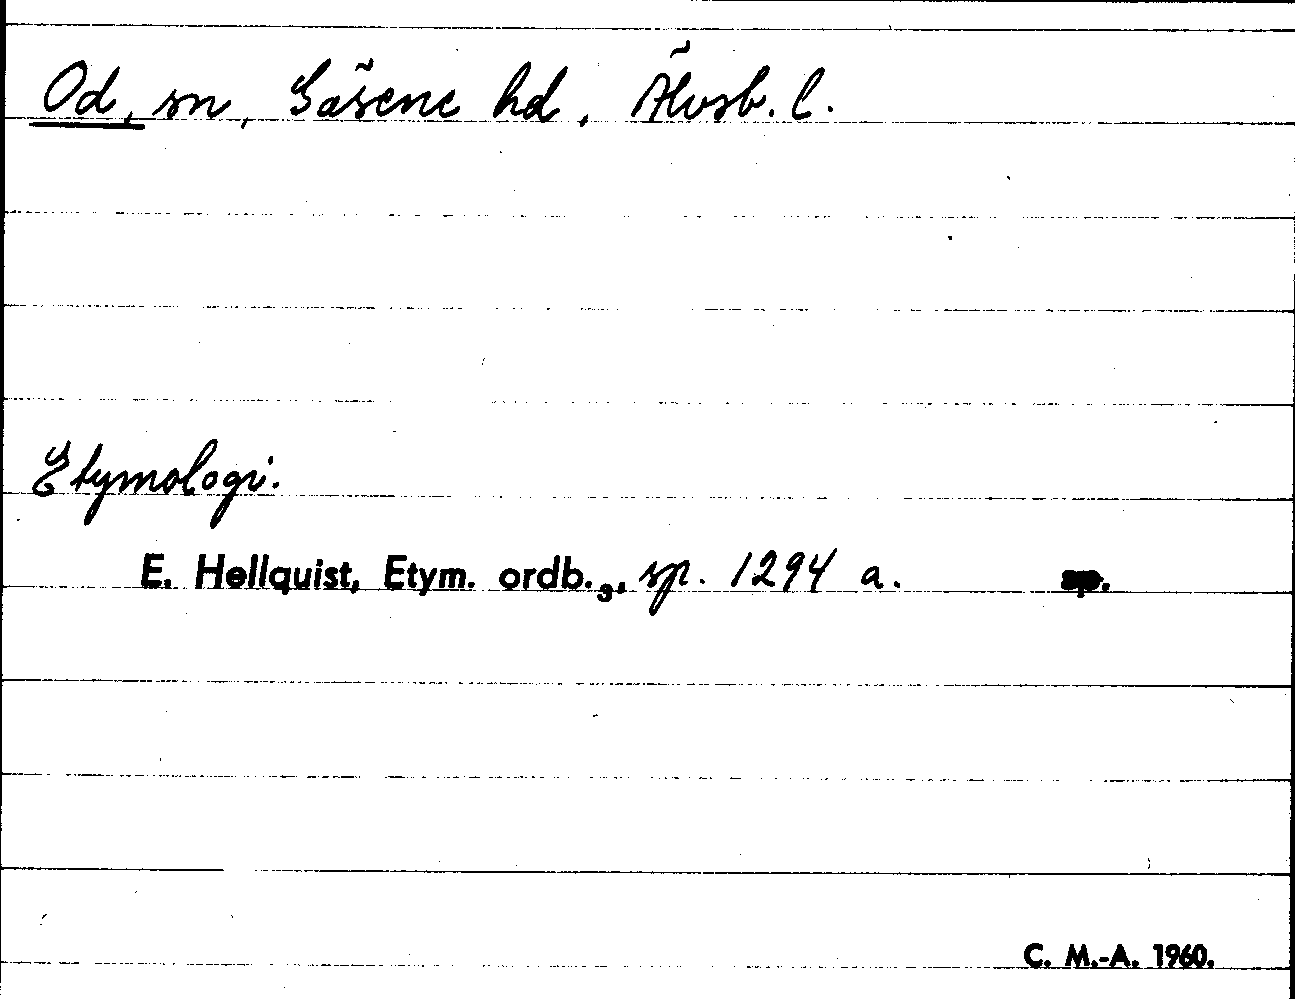 Od, sn, Gäsene hd, Älvsb. l.
Etymologi.
E. Hellquist, Etym. ordb.₃, sp. 1294 a.
C. M.-A. 1960.